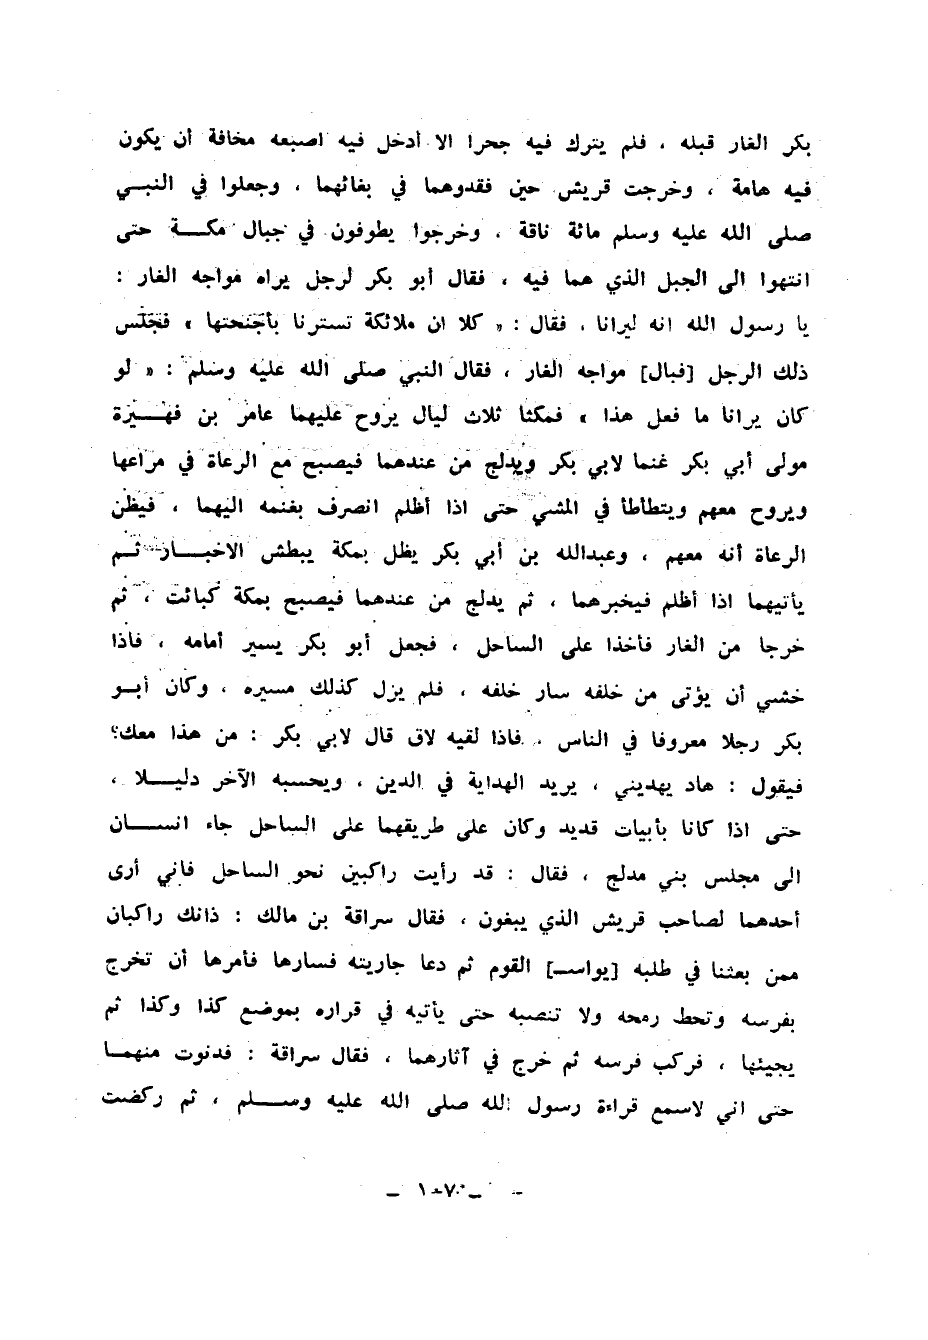 بكر الغار قبله ، فلم يترك فيه جحرا الا أدخل فيه اصبعه مخافة أن يكون
فيه هامة ، وخرجت قريش حين فقدوهما في بغائهما ، وجعلوا في النبي
صلى الله عليه وسلم مائة ناقة ، وخرجوا يطوفون في جبال مكة حتى
انتهوا الى الجبل الذي هما فيه ، فقال أبو بكر لرجل يراه مواجه الغار :
يا رسول الله انه ليرانا ، فقال : « كلا ان ملائكة تسترنا بأجنحتها » فجلس
ذلك الرجل [فبال] مواجه الغار ، فقال النبي صلى الله عليه وسلم : « لو
كان يرانا ما فعل هذا » فمكثا ثلاث ليال يروح عليهما عامر بن فهيرة
مولى أبي بكر غنما لابي بكر ويدلج من عندهما فيصبح مع الرعاة في مراعها
ويروح معهم ويتطاطأ في المشي حتى اذا أظلم انصرف بغنمه اليهما ، فيظن
الرعاة أنه معهم ، وعبدالله بن أبي بكر يظل بمكة يبطش الاخبار ثم
يأتيهما اذا أظلم فيخبرهما ، ثم يدلج من عندهما فيصبح بمكة كبائت ، ثم
خرجا من الغار فأخذا على الساحل ، فجعل أبو بكر يسير أمامه ، فاذا
خشي أن يؤتى من خلفه سار خلفه ، فلم يزل كذلك مسيره ، وكان أبو
بكر رجلا معروفا في الناس ، فاذا لقيه لاق قال لابي بكر : من هذا معك؟
فيقول : هاد يهديني ، يريد الهداية في الدين ، ويحسبه الآخر دليلا ،
حتى اذا كانا بأبيات قديد وكان على طريقهما على الساحل جاء انسان
الى مجلس بني مدلج ، فقال : قد رأيت راكبين نحو الساحل فاني أرى
أحدهما لصاحب قريش الذي يبغون ، فقال سراقة بن مالك : ذانك راكبان
ممن بعثنا في طلبه [يواسـ] القوم ثم دعا جاريته فسارها فأمرها أن تخرج
بفرسه وتحط رمحه ولا تنصبه حتى يأتيه في قراره بموضع كذا وكذا ثم
يجيئها ، فركب فرسه ثم خرج في آثارهما ، فقال سراقة : فدنوت منهما
حتى اني لاسمع قراءة رسول الله صلى الله عليه وسلم ، ثم ركضت